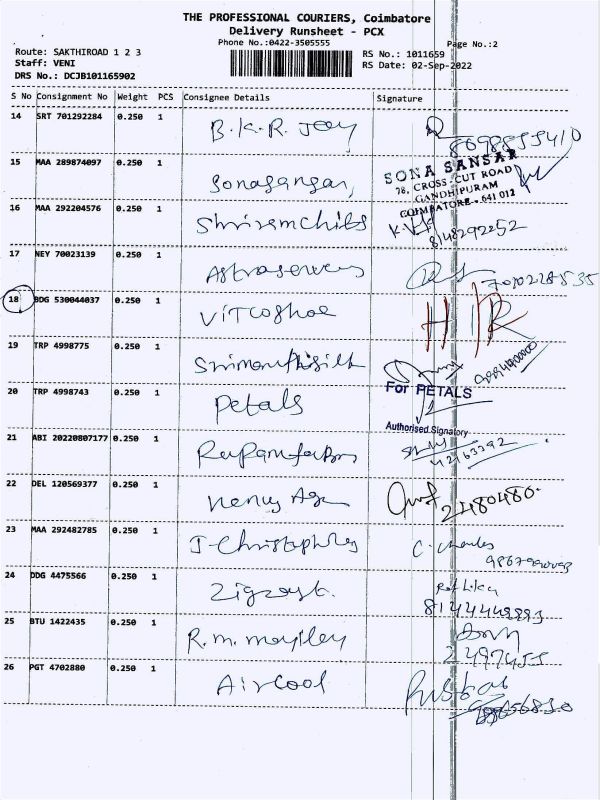 THE PROFESSIONAL COURIERS, Coimbatore
Delivery Runsheet - PCX
Phone No.:0422-3505555
Page No.:2
Route: SAKTHIROAD 1 2 3
RS No.: 1011659
Staff: VENI
RS Date: 02-Sep-2022
DRS No.: DCJB101165902
S No Consignment No Weight PCS Consignee Details Signature
14 SRT 701292284 0.250 1 B.K.R. Jeey
15 MAA 289874097 0.250 1 Sonasansar,
SONA SANSAR
78, CROSS CUT ROAD
GANDHIPURAM
COIMBATORE - 641 012
16 MAA 292204576 0.250 1 Shriramchits
8148292252
17 NEY 70023139 0.250 1
18 BDG 530044037 0.250 1
19 TRP 4998775 0.250 1
20 TRP 4998743 0.250 1 Petals
For PETALS
Authorised Signatory
21 ABI 20220807177 0.250 1
42163392
22 DEL 120569377 0.250 1
2480480.
23 MAA 292482785 0.250 1 C. Charles
24 DDG 4475566 0.250 1
25 BTU 1422435 0.250 1 R.m. moyiley
26 PGT 4702880 0.250 1 Aircool